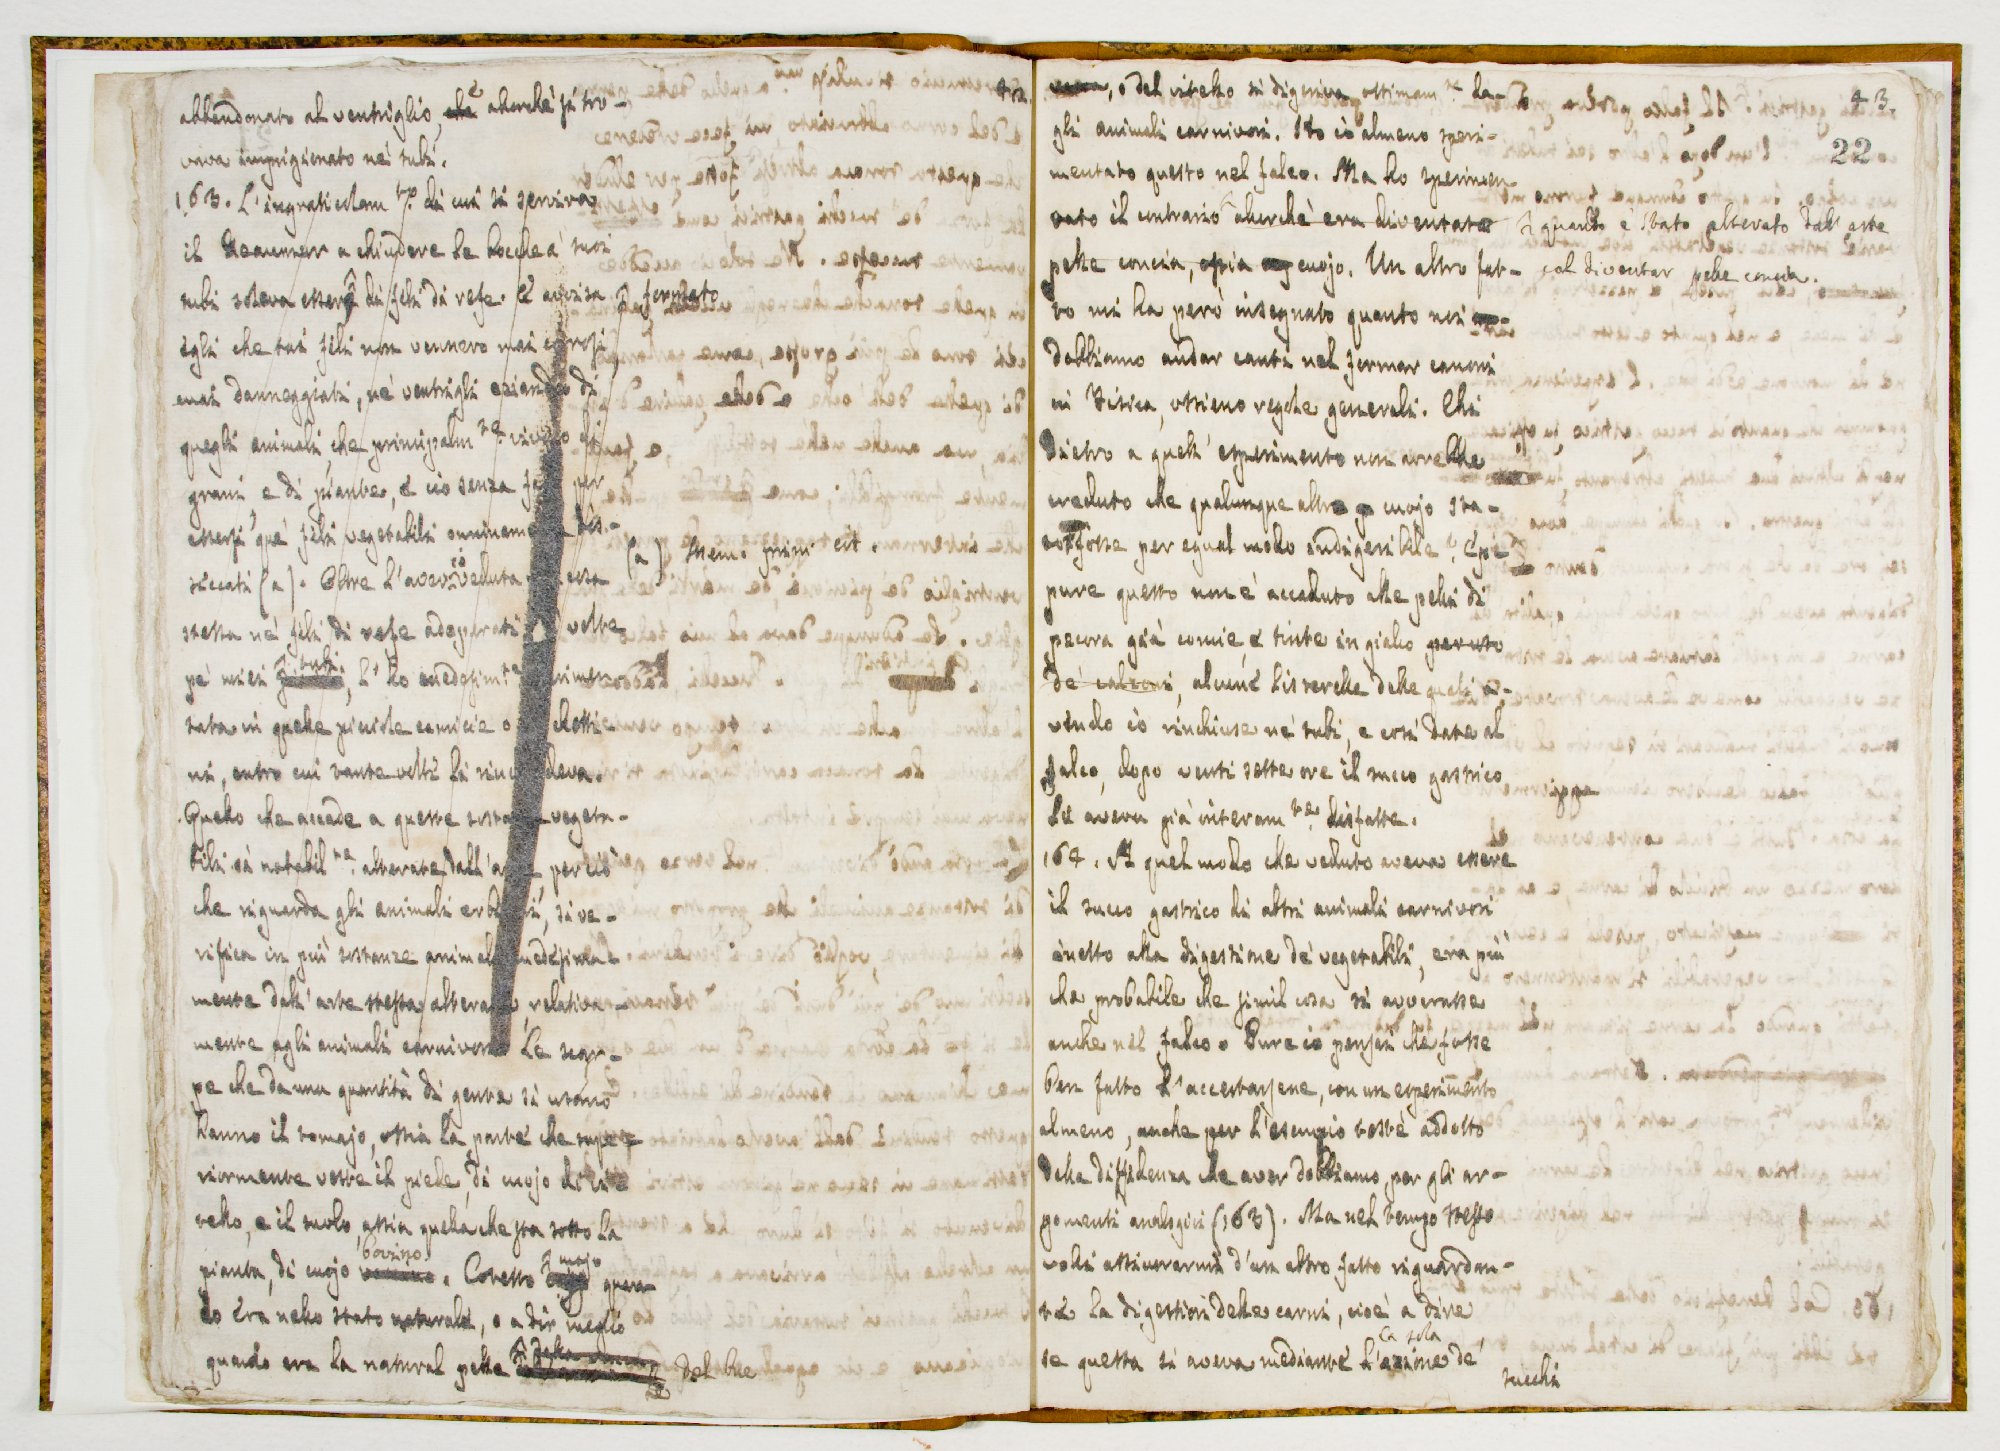 42.
abbandonato al ventriglio, che allorchè si tro-
vava imprigionato nei tubi.
163. L'ingraticolam.to di cui si serviva
il Reaumur a chiudere le bocche a' suoi
tubi soleva essere di fili di refe. E avvisa
formato
egli che tai fili non vennero mai corrosi,
mai danneggiati, ne' ventrigli eziandio di
quegli animali, che principalm.te vivono di
grani e di piante, e ciò senza fallo per
essersi que' fili vegetabili onninamente dis-
siccati (a). Oltre l'aver io veduta la cosa
(a) Mem. prim. cit.
stessa ne' fili di refe adoperati più volte
pe' miei tubi, l'ho medesim.te sperimen-
tata in quelle picciole camicie o sacchetti-
ni, entro cui tante volte li rinchiudeva.
Quello che accade a queste sostanze vegeta-
bili sì notabil.te alterate dall'arte, per ciò
che riguarda gli animali erbivori, si ve-
rifica in più sostanze animali medesima-
mente dall'arte stessa alterate, relativa-
mente agli animali carnivori. Le scar-
pe che da una quantità di gente si usano
hanno il tomajo, ossia la parte che supe-
riormente veste il piede, di cuojo di vi-
tello, e il suolo, ossia quella che sta sotto la
bovino
pianta, di cuojo. Cotesto cuojo quan-
do era nello stato naturale, o a dir meglio
quando era la natural pelle del bue
43.
22
o del vitello si digeriva ottimam.te da-
gli animali carnivori. Ho io almeno speri-
mentato questo nel falco. Ma ho sperimen-
tato il contrario allorchè era diventato
quando è stato alterato dall'arte
pelle concia, ossia cuojo. Un altro fat-
col diventar pelle concia.
to mi ha però insegnato quanto noi
dobbiamo andar cauti nel formar canoni
in Fisica, ossieno regole generali. Chi
dietro a quell'esperimento non avrebbe
creduto che qualunque altro cuojo sta-
to fosse per egual modo indigeribile? Ep-
pure questo non è accaduto alle pelli di
pecora già concie, e tinte in giallo per uso
de' calzoni, alcune listerelle delle quali a-
vendo io rinchiuse ne' tubi, e così date al
falco, dopo venti sette ore il succo gastrico
le aveva già interam.te disfatte.
164. A quel modo che veduto aveva essere
il succo gastrico di altri animali carnivori
inetto alla digestione de' vegetabili, era più
che probabile che simil cosa si avverasse
anche nel falco. Pure io pensai che fosse
ben fatto l'accertarsene, con un esperimento
almeno, anche per l'esempio testè addotto
della diffidenza che aver dobbiamo per gli ar-
gomenti analogici (163). Ma nel tempo stesso
volli assicurarmi d'un altro fatto riguardan-
te la digestion delle carni, cioè a dire
la sola
se questa si aveva mediante l'azione de'
succhi